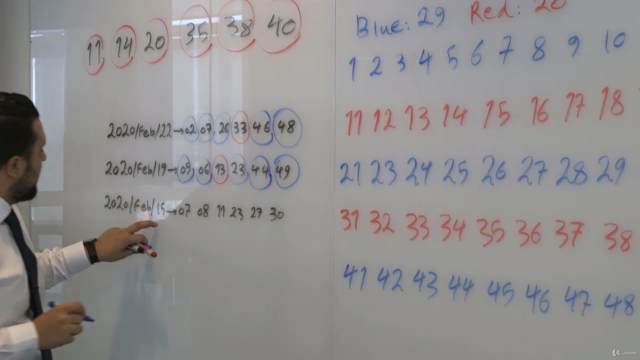 11 14 20 35 38 40
2020/Feb/22→02 07 26 33 46 48
2020/Feb/19→05 06 13 23 44 49
2020/Feb/15→07 08 11 23 27 30
Blue: 29 Red: 20
1 2 3 4 5 6 7 8 9 10
11 12 13 14 15 16 17 18
21 23 24 25 26 27 28 29
31 32 33 34 35 36 37 38
41 42 43 44 45 46 47 48